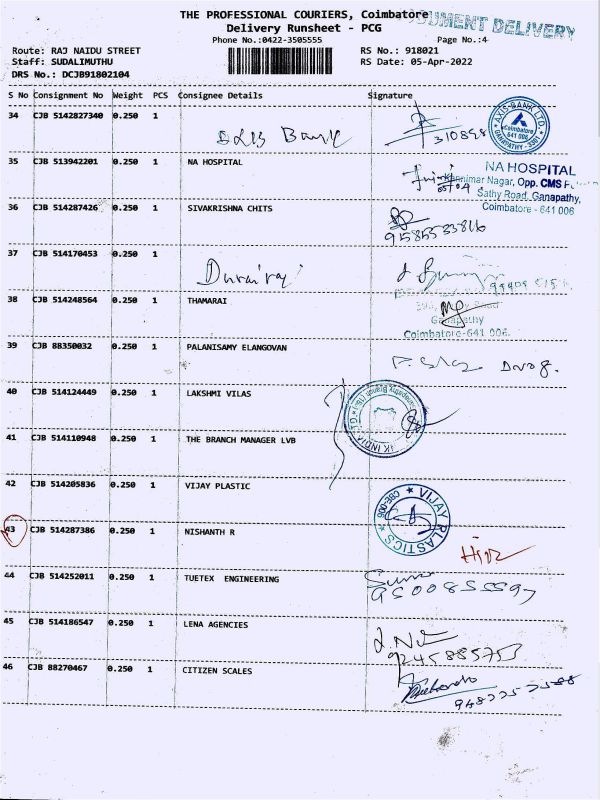 THE PROFESSIONAL COURIERS, Coimbatore
DOCUMENT DELIVERY
Delivery Runsheet - PCG
Phone No.:0422-3505555 Page No.:4
Route: RAJ NAIDU STREET RS No.: 918021
Staff: SUDALIMUTHU RS Date: 05-Apr-2022
DRS No.: DCJB91802104
S No Consignment No Weight PCS Consignee Details Signature
34 CJB 5142827340 0.250 1 310898
AXIS BANK LTD. Coimbatore 641 006 GANAPATHY - 3301
35 CJB 513942201 0.250 1 NA HOSPITAL
NA HOSPITAL
Kannimar Nagar, Opp. CMS
Sathy Road, Ganapathy,
Coimbatore - 641 006
36 CJB 514287426 0.250 1 SIVAKRISHNA CHITS
9585533816
37 CJB 514170453 0.250 1 Durairaj
38 CJB 514248564 0.250 1 THAMARAI
Road
Ganapathy
Coimbatore-641 006.
39 CJB 88350032 0.250 1 PALANISAMY ELANGOVAN
40 CJB 514124449 0.250 1 LAKSHMI VILAS
41 CJB 514110948 0.250 1 THE BRANCH MANAGER LVB
42 CJB 514205836 0.250 1 VIJAY PLASTIC
VIJAY PLASTICS CBE-006
43 CJB 514287386 0.250 1 NISHANTH R
44 CJB 514252011 0.250 1 TUETEX ENGINEERING
9500855597
45 CJB 514186547 0.250 1 LENA AGENCIES
9245885753
46 CJB 88270467 0.250 1 CITIZEN SCALES